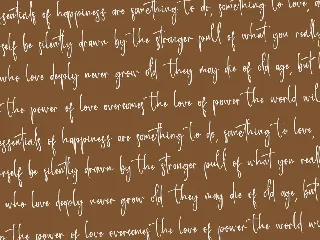 essentials of happiness are something to do, something to love, a
rself be silently drawn by the stranger pull of what you really
who love deeply never grow old they may die of old age, but
the power of love overcomes the love of power the world will
essentials of happiness are something to do, something to love,
rself be silently drawn by the stranger pull of what you reall
who love deeply never grow old they may die of old age, but
the power of love overcomes the love of power the world wi